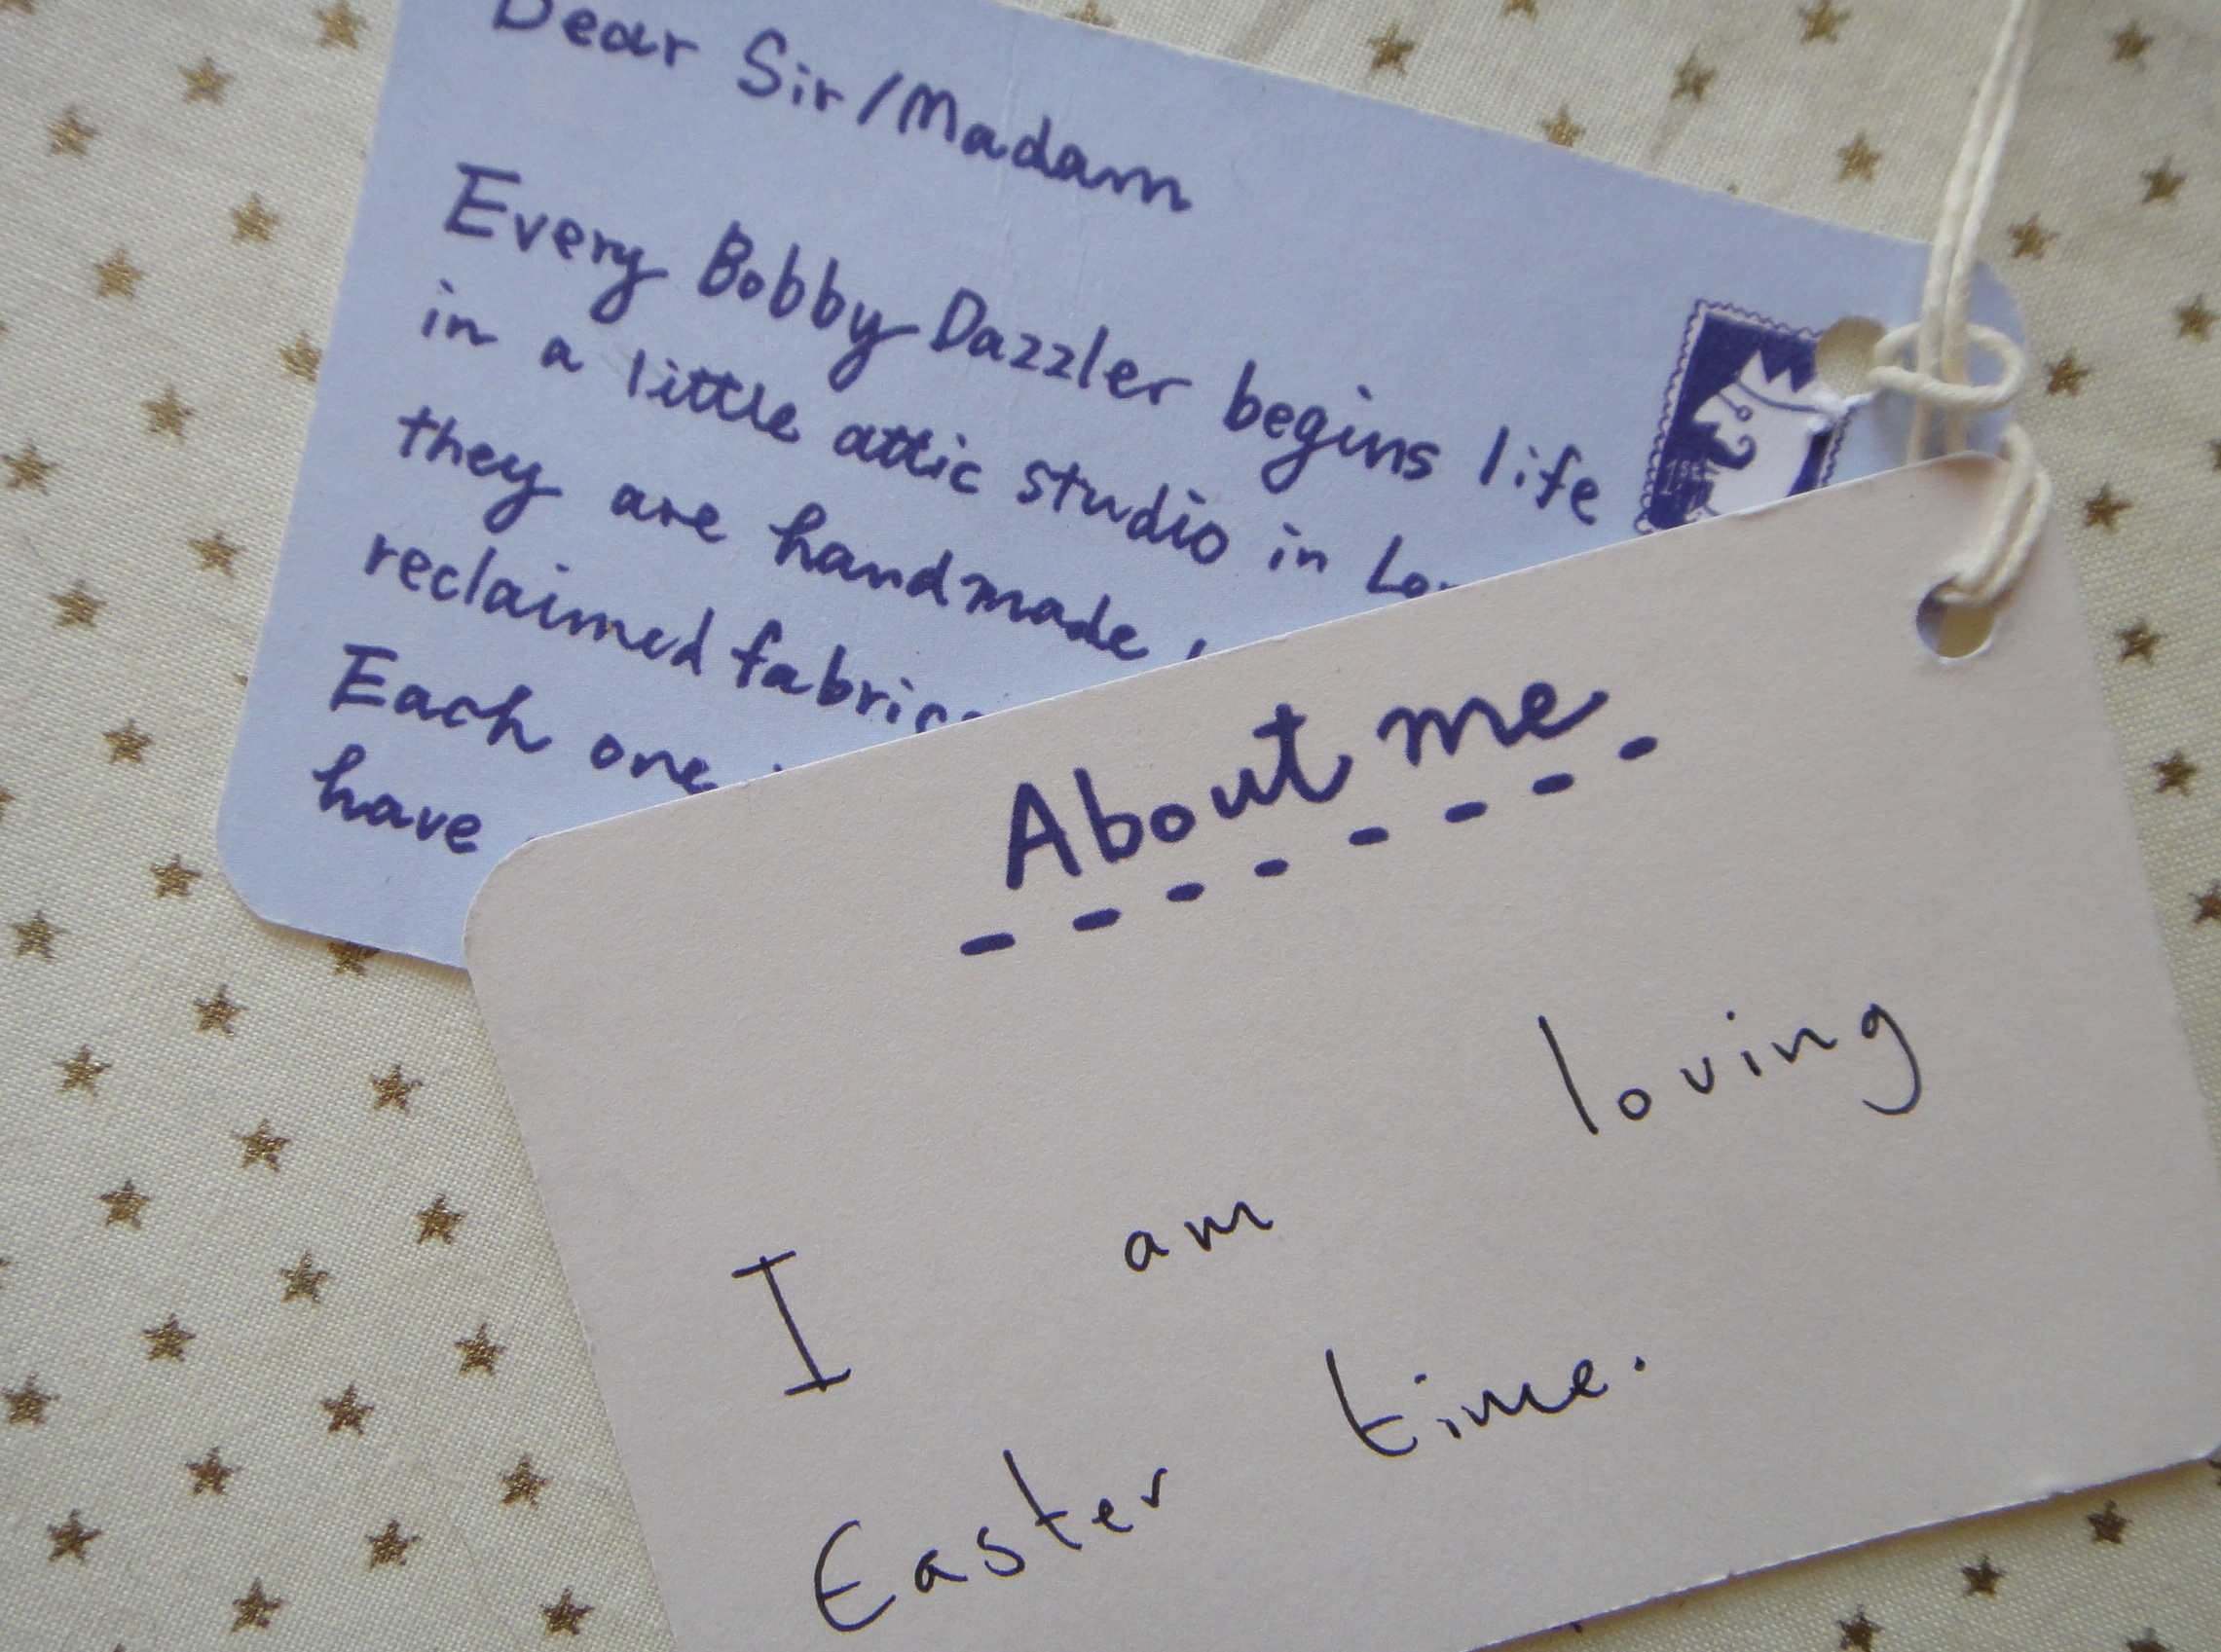 Dear Sir/Madam
Every Bobby Dazzler begins life
in a little attic studio in
they are handmade
reclaimed
Each one
have
About me
I am loving
Easter time.